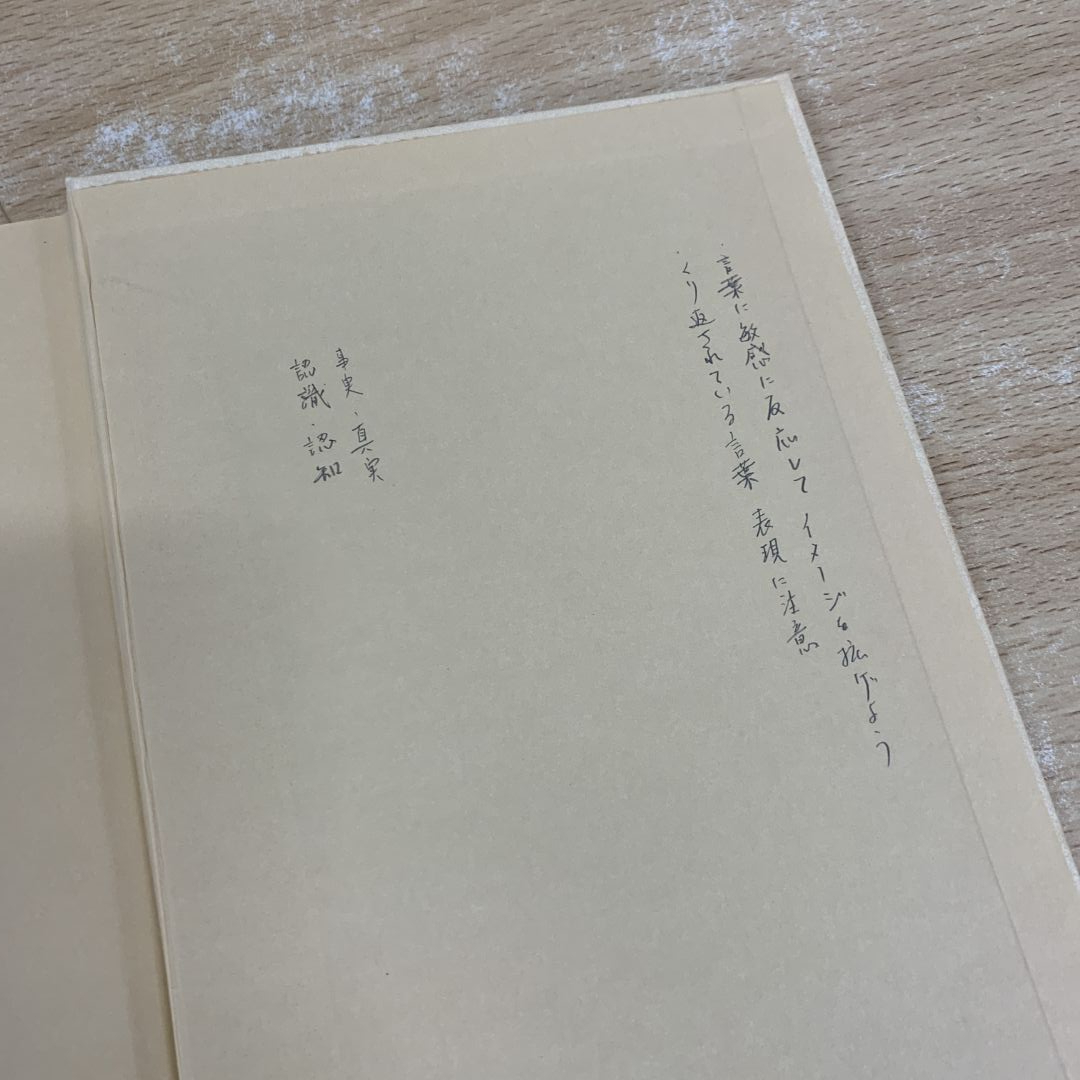 ・言葉に敏感に反応して イメージを拡げよう
・くり返されている言葉 表現に注意
事実・真実
認識・認知